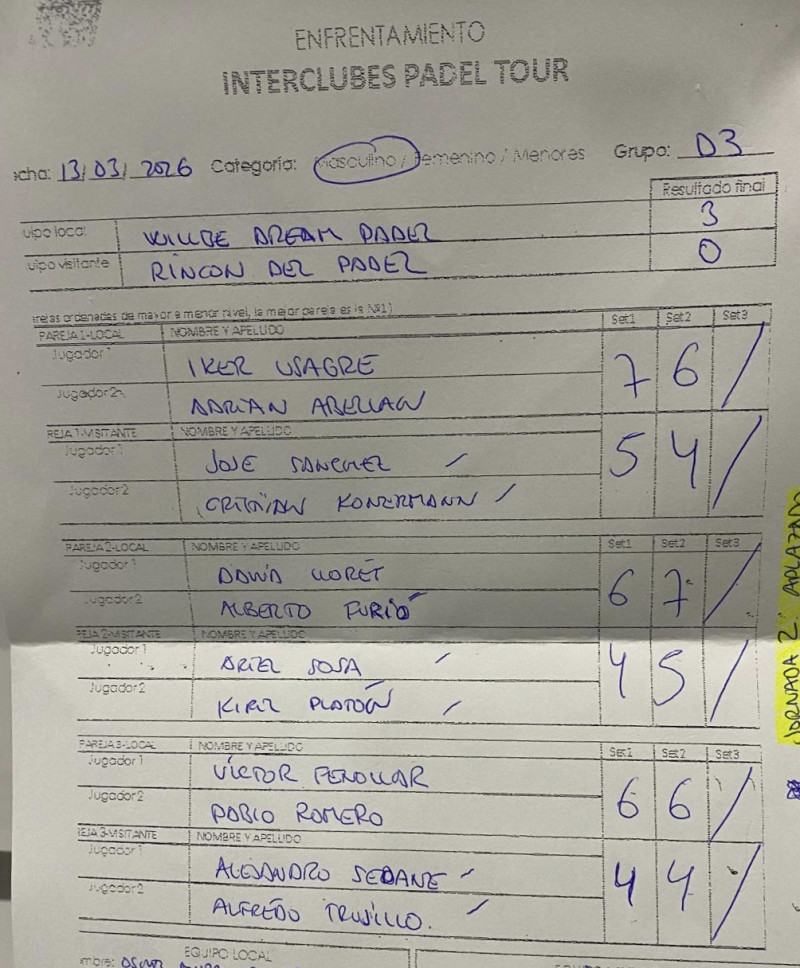 ENFRENTAMIENTO
INTERCLUBES PADEL TOUR
echa: 13/03/2026 Categoría: Masculino / Femenino / Menores Grupo: D3
Resultado final
uipo local WILLBE DREAM PADEL 3
uipo visitante RINCON DEL PADEL 0
(parejas ordenadas de mayor a menor nivel, la mejor pareja es la Nº1)
PAREJA 1-LOCAL NOMBRE Y APELLIDO Set1 Set2 Set3
Jugador 1 IKER USAGRE 7 6 /
Jugador 2 ADRIAN ABELLAN
REJA 1-VISITANTE NOMBRE Y APELLIDO
Jugador 1 JOSE SANCHEZ / 5 4 /
Jugador 2 CRITSIAN KONERMANN /
PAREJA 2-LOCAL NOMBRE Y APELLIDO Set1 Set2 Set3
Jugador 1 DAVID LLORET 6 7 /
Jugador 2 ALBERTO FURIÓ
REJA 2-VISITANTE NOMBRE Y APELLIDO
Jugador 1 ARIEL SOSA / 4 5 /
Jugador 2 KIRIL PLATÓN /
PAREJA 3-LOCAL NOMBRE Y APELLIDO Set1 Set2 Set3
Jugador 1 VÍCTOR PENOLLAR 6 6 /
Jugador 2 PABLO ROMERO
REJA 3-VISITANTE NOMBRE Y APELLIDO
Jugador 1 ALEJANDRO SEOANE / 4 4 /
Jugador 2 ALFREDO TRUJILLO. /
EQUIPO LOCAL
ombre: OSCAR
JORNADA 2: APLAZADO